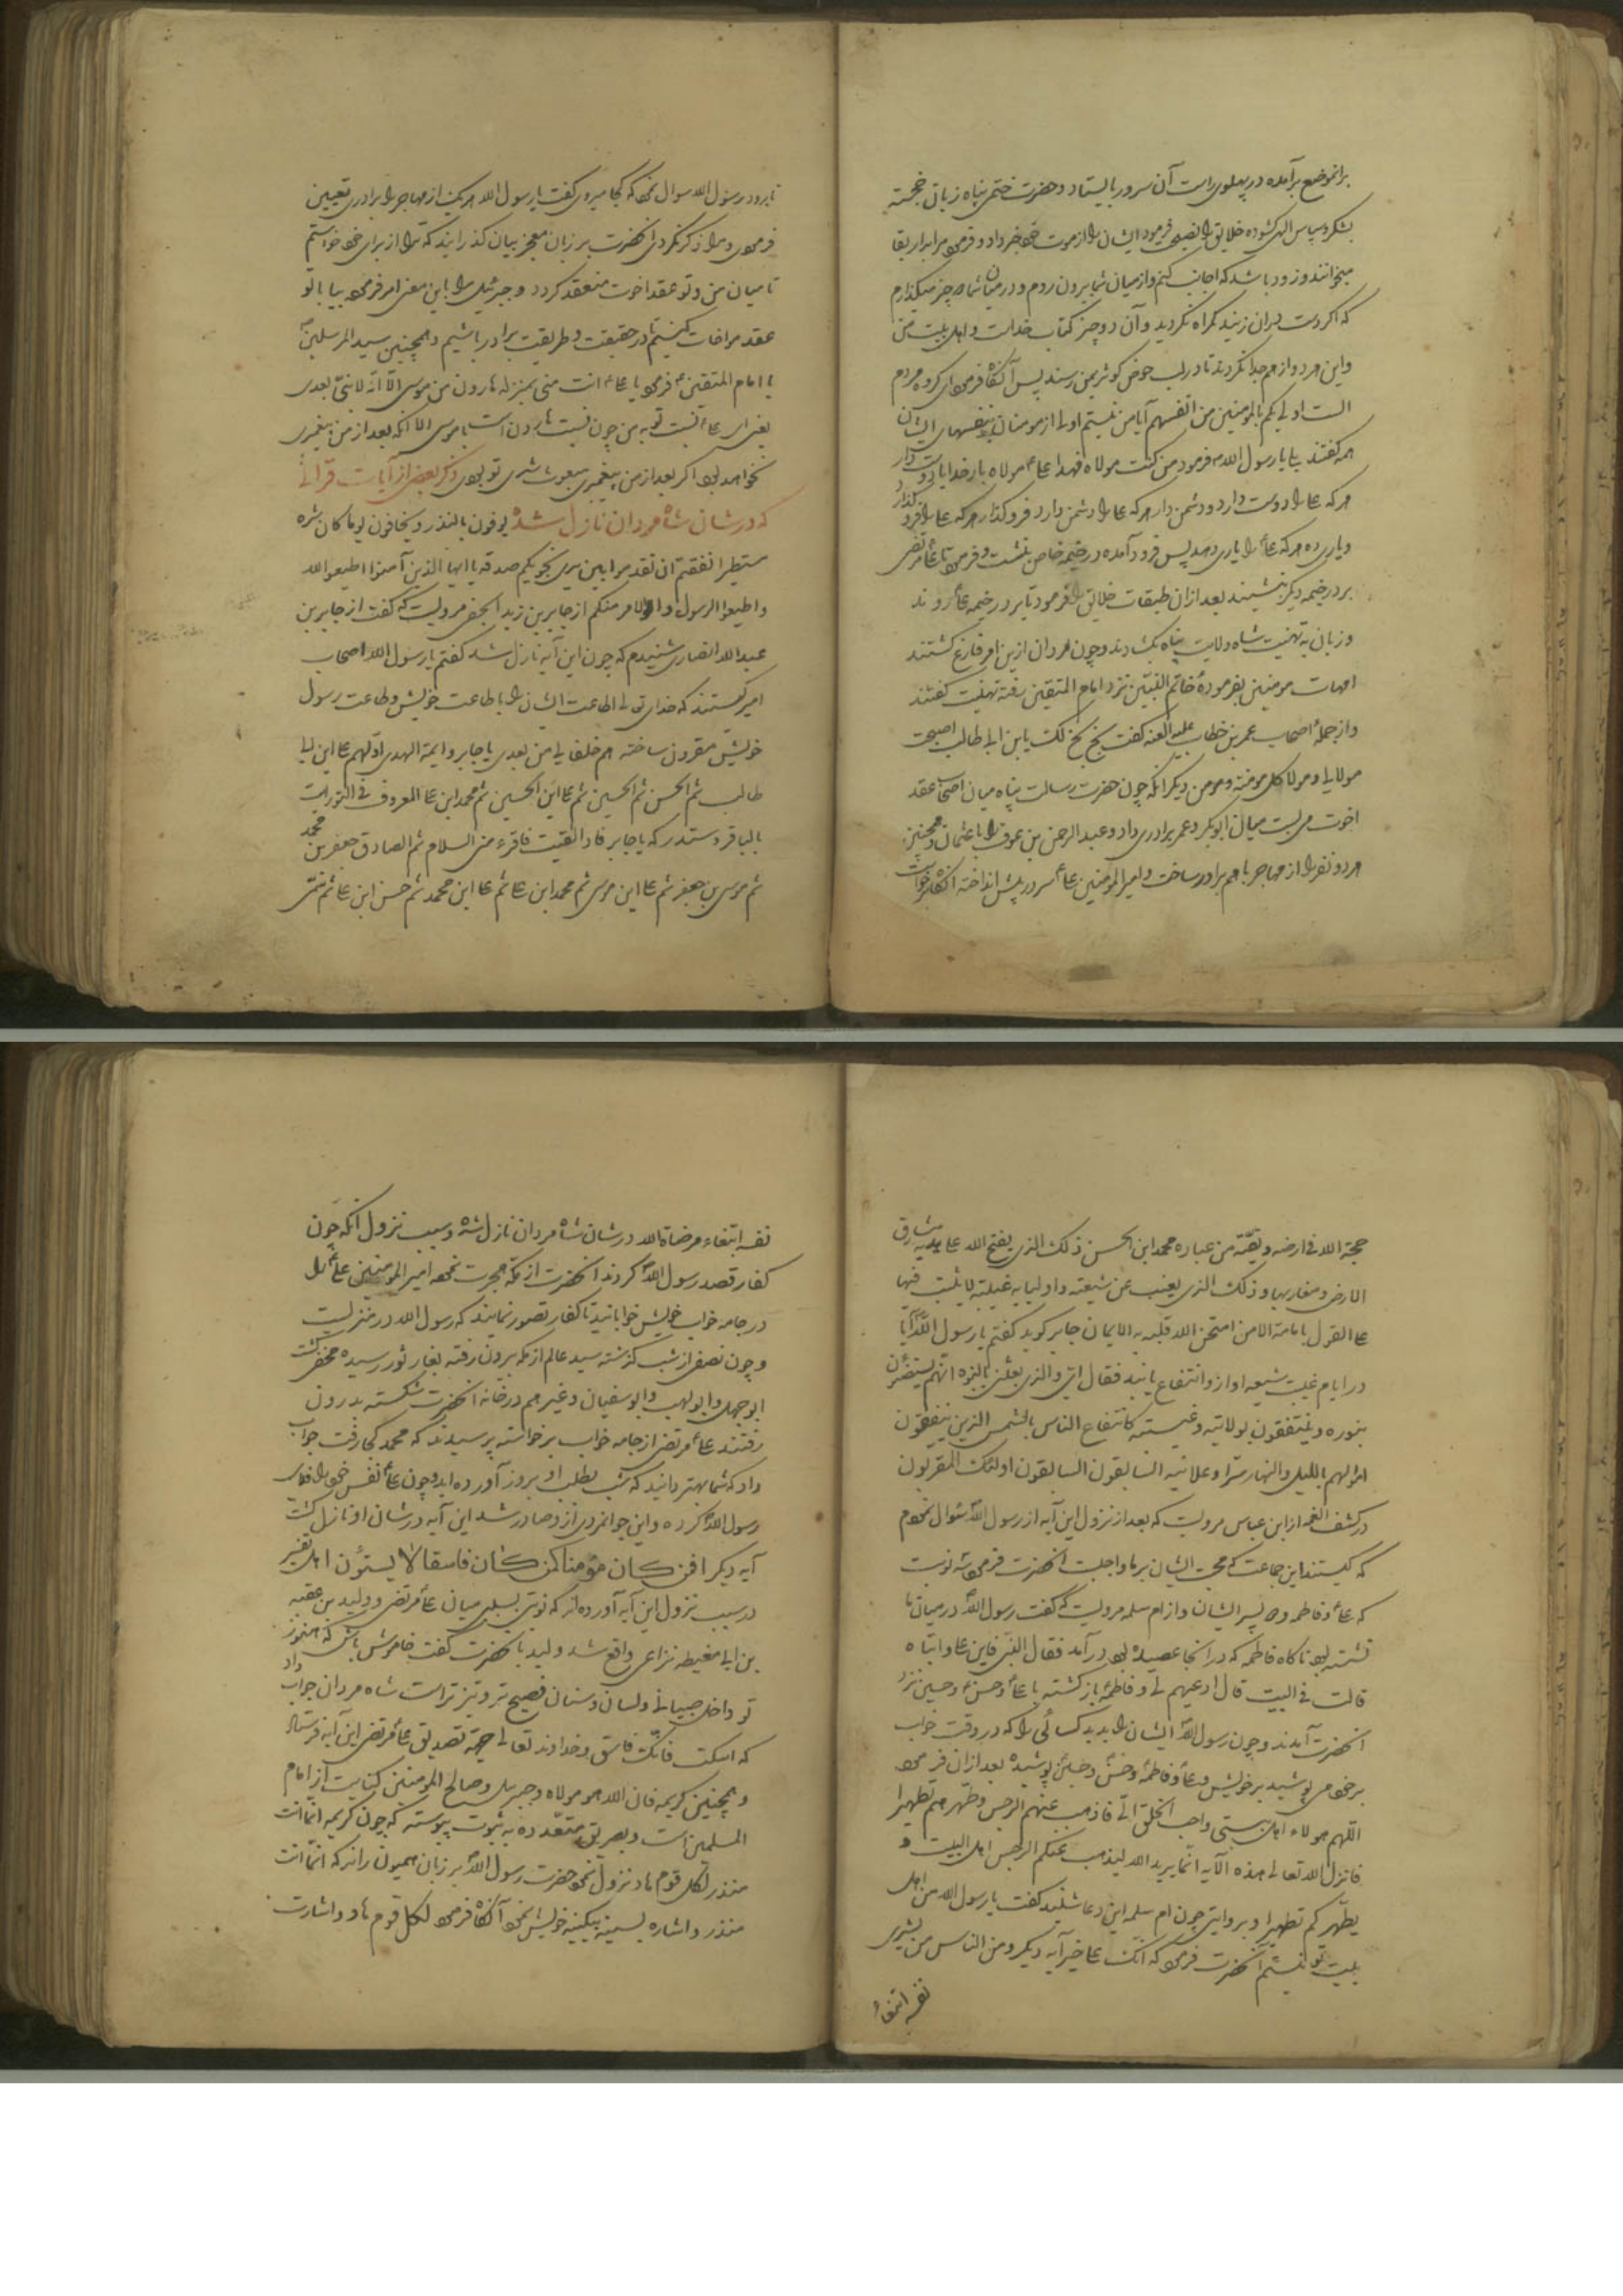 برانموضع برآمده در پهلوی راست آن سرور بایستاد و حضرت ختمی پناه زبان خجسته
بشکر و سپاس الهی کشوده خلایق را نصیحت فرمود و ایشان را از موت خود خبر داد و فرمود مرا بدار بقا
میخوانند و زود باشد که اجابت کنم و از میان شما بیرون روم و در میان شما دو چیز میکذارم
که اکر دست بران زنید کمراه نکردید و آن دو چیز کتاب خداست و اهل بیت من
و این هر دو از هم جدا نکردند تا در لب حوض کوثر بمن رسند پس آنکاه فرمود ای کروه مردم
الست اولی بکم بالمومنین من انفسهم آیا من نیستم اولی از مومنان بنفسهای ایشان
همه کفتند بلی یا رسول الله فرمود من کنت مولاه فهذا علی مولاه بار خدایا دوست دار
هر که علی را دوست دارد و دشمن دار هر که علی را دشمن دارد فرو کذار هر که علی را فرو کذارد
و یاری ده هر که علی را یاری دهد پس فرود آمده در خیمه خاص بنشست و فرمود تا علی مرتضی
بر در خیمه دیکر بنشیند بعد ازان طبقات خلایق را فرمود تا بر در خیمه علی روند
و زبان به تهنیت شاه ولایت پناه بکشادند و چون مردان ازین امر فارغ کشتند
امهات مومنین بفرموده خاتم النبیین نزد امام المتقین رفته تهنیت کفتند
و از جمله اصحاب عمر بن خطاب علیه العنه کفت بخ بخ لک یابن ابی طالب اصبحت
مولای و مولا کل مومنة و مومن دیکر آنکه چون حضرت رسالت پناه میان اصحاب عقد
اخوت می بست میان ابوبکر و عمر برادری داد و عبد الرحمن بن عوف را با عثمان و همچنین
هر دو نفر را از مهاجر با هم برادر ساخت و امیر المومنین علی سر در پیش انداخته آنکاه برخواست
تا برود رسول الله سوال نمود که کجا میروی کفت یا رسول الله هر یک از مهاجر را برادری تعیین
فرمودی و مرا ذکر نکردی آنحضرت بر زبان معجز بیان کذرانید که ترا از برای خود خواستم
تا میان من و تو عقد اخوت منعقد کردد و جبرئیل مرا باین معنی امر فرمود بیا با تو
عقد مواخات کنیم تا در حقیقت و طریقت برادر باشیم و همچنین سید المرسلین
با امام المتقین فرمود یا علی انت منی بمنزله هارون من موسی الا انه لا نبی بعدی
یعنی ای علی نسبت تو به من چون نسبت هارون است با موسی الا آنکه بعد از من پیغمبری
نخواهد بود اکر بعد از من پیغمبری مبعوث شدی تو بودی ذکر بعضی از آیات قرآنی
که در شان شاه مردان نازل شده یوفون بالنذر و یخافون یوما کان شره
مستطیرا انفقتم ان تقدموا بین یدی نجویکم صدقه یا ایها الذین آمنوا اطیعوا الله
و اطیعوا الرسول و اولا الامر منکم از جابر بن زید الجعفی مرویست که کفت از جابر بن
عبد الله انصاری شنیدم که چون این آیه نازل شد کفتم یا رسول الله اصحاب
امیر کیستند که خدای تعالی اطاعت ایشان را با طاعت خویش و طاعت رسول
خویش مقرون ساخته هم خلفایی من بعدی یا جابر و ایمة الهدی اولهم علی ابن ابی
طالب ثم الحسن ثم الحسین ثم علی ابن الحسین ثم محمد ابن علی المعروف فی التورات
بالباقر و ستدرکه یا جابر فاذا لقیت فاقرء منی السلام ثم الصادق جعفر بن محمد
ثم موسی بن جعفر ثم علی ابن موسی ثم محمد ابن علی ثم علی ابن محمد ثم حسن ابن علی ثم سمی
حجة الله فی ارضه و بقیته من عباره محمد ابن الحسن ذلک الذی یفتح الله علی یدیه مشارق
الارض و مغاربها و ذلک الذی یغیب عن شیعته و اولیایه غیبة لا یثبت فیها
علی القول بامامته الا من امتحن الله قلبه به الایمان جابر کوید کفتم یا رسول الله آیا
در ایام غیبت شیعه او ازو انتفاع یابند فقال ای و الذی بعثنی بالنبوه انهم یستضؤن
بنوره و ینتفعون بولایته و غیبته کانتفاع الناس بالشمس الذین ینفقون
اموالهم باللیل و النهار سرا و علانیه السابقون السابقون اولئک المقربون
در کشف الغمه از ابن عباس مرویست که بعد از نزول این آیه از رسول الله سئوال نمودم
که کیستند این جماعت که محبت ایشان بر ما واجبست آنحضرت فرمود سه نوبت
که علی و فاطمه و دو پسر ایشان و از ام سلمه مرویست که کفت رسول الله در میان ما
نشسته بود ناکاه فاطمه که در آنجا عصیده بود در آمد فقال النبی فاین علی و ابناه
قالت فی البیت قال ادعیهم لی و فاطمه باز کشته با علی و حسن و حسین نزد
آنحضرت آمدند و چون رسول الله ایشان را بدید کسائی را که در وقت خواب
بر خود می پوشید بر خویش و علی و فاطمه و حسن و حسین پوشید بعد ازان فرمود
اللهم هولاء اهل بیتی و احب الخلق الی فاذهب عنهم الرجس و طهرهم تطهیرا
فانزل الله تعالی هذه الآیه انما یرید الله لیذهب عنکم الرجس اهل البیت و
یطهرکم تطهیرا و بروایتی چون ام سلمه این دعا شنید کفت یا رسول الله من اهل
بیت تو نیستم آنحضرت فرمود که انک علی خیر آیه دیکر و من الناس من یشری
نفسه ابتغاء
نفسه ابتغاء مرضات الله در شان شاه مردان نازل شده و سبب نزول آنکه چون
کفار قصد رسول الله کردند آنحضرت از مکه هجرت نموده امیر المومنین علی را
در جامه خواب خویش خوابانید تا کفار تصور نمایند که رسول الله در منزلست
و چون نصفی از شب کزشته سید عالم از مکه بیرون رفته بغار ثور رسیده مخفی کشت
ابو جهل و ابو لهب و ابو سفیان و غیرهم در خانه آنحضرت شکسته بدرون
رفتند علی مرتضی از جامه خواب برخواسته پرسیدند که محمد کجا رفت جواب
داد که شما بهتر دانید که شب بطلب او بروز آورده اید و چون علی نفس خود را فدای
رسول الله کرده و این جوانمردی ازو صادر شد این آیه در شان او نازل کشت
آیه دیکر افمن کان مؤمنا کمن کان فاسقا لا یستون اهل تفسیر
در سبب نزول این آیه آورده اند که نوبتی میان علی مرتضی و ولید بن عقبه
بن ابی مغیطه نزاعی واقع شد ولید با آنحضرت کفت خاموش باش که هنوز
تو داخل صبیانی و لسان و سنان فصیح تر و تیزتر است شاه مردان جواب داد
که اسکت فانک فاسق و خداوند تعالی جهة تصدیق علی مرتضی این آیه فرستاد
و همچنین کریمه فان الله هو مولاه و جبریل و صالح المومنین کنایت از امام
المسلمین است و بطریق متعدده به ثبوت پیوسته که چون کریمه انما انت
منذر لکل قوم هاد نزول نمود حضرت رسول الله بر زبان همیون راند که انما انت
منذر و اشاره بسینه بیکینه خویش نمود آنکاه فرمود لکل قوم هاد و اشارت